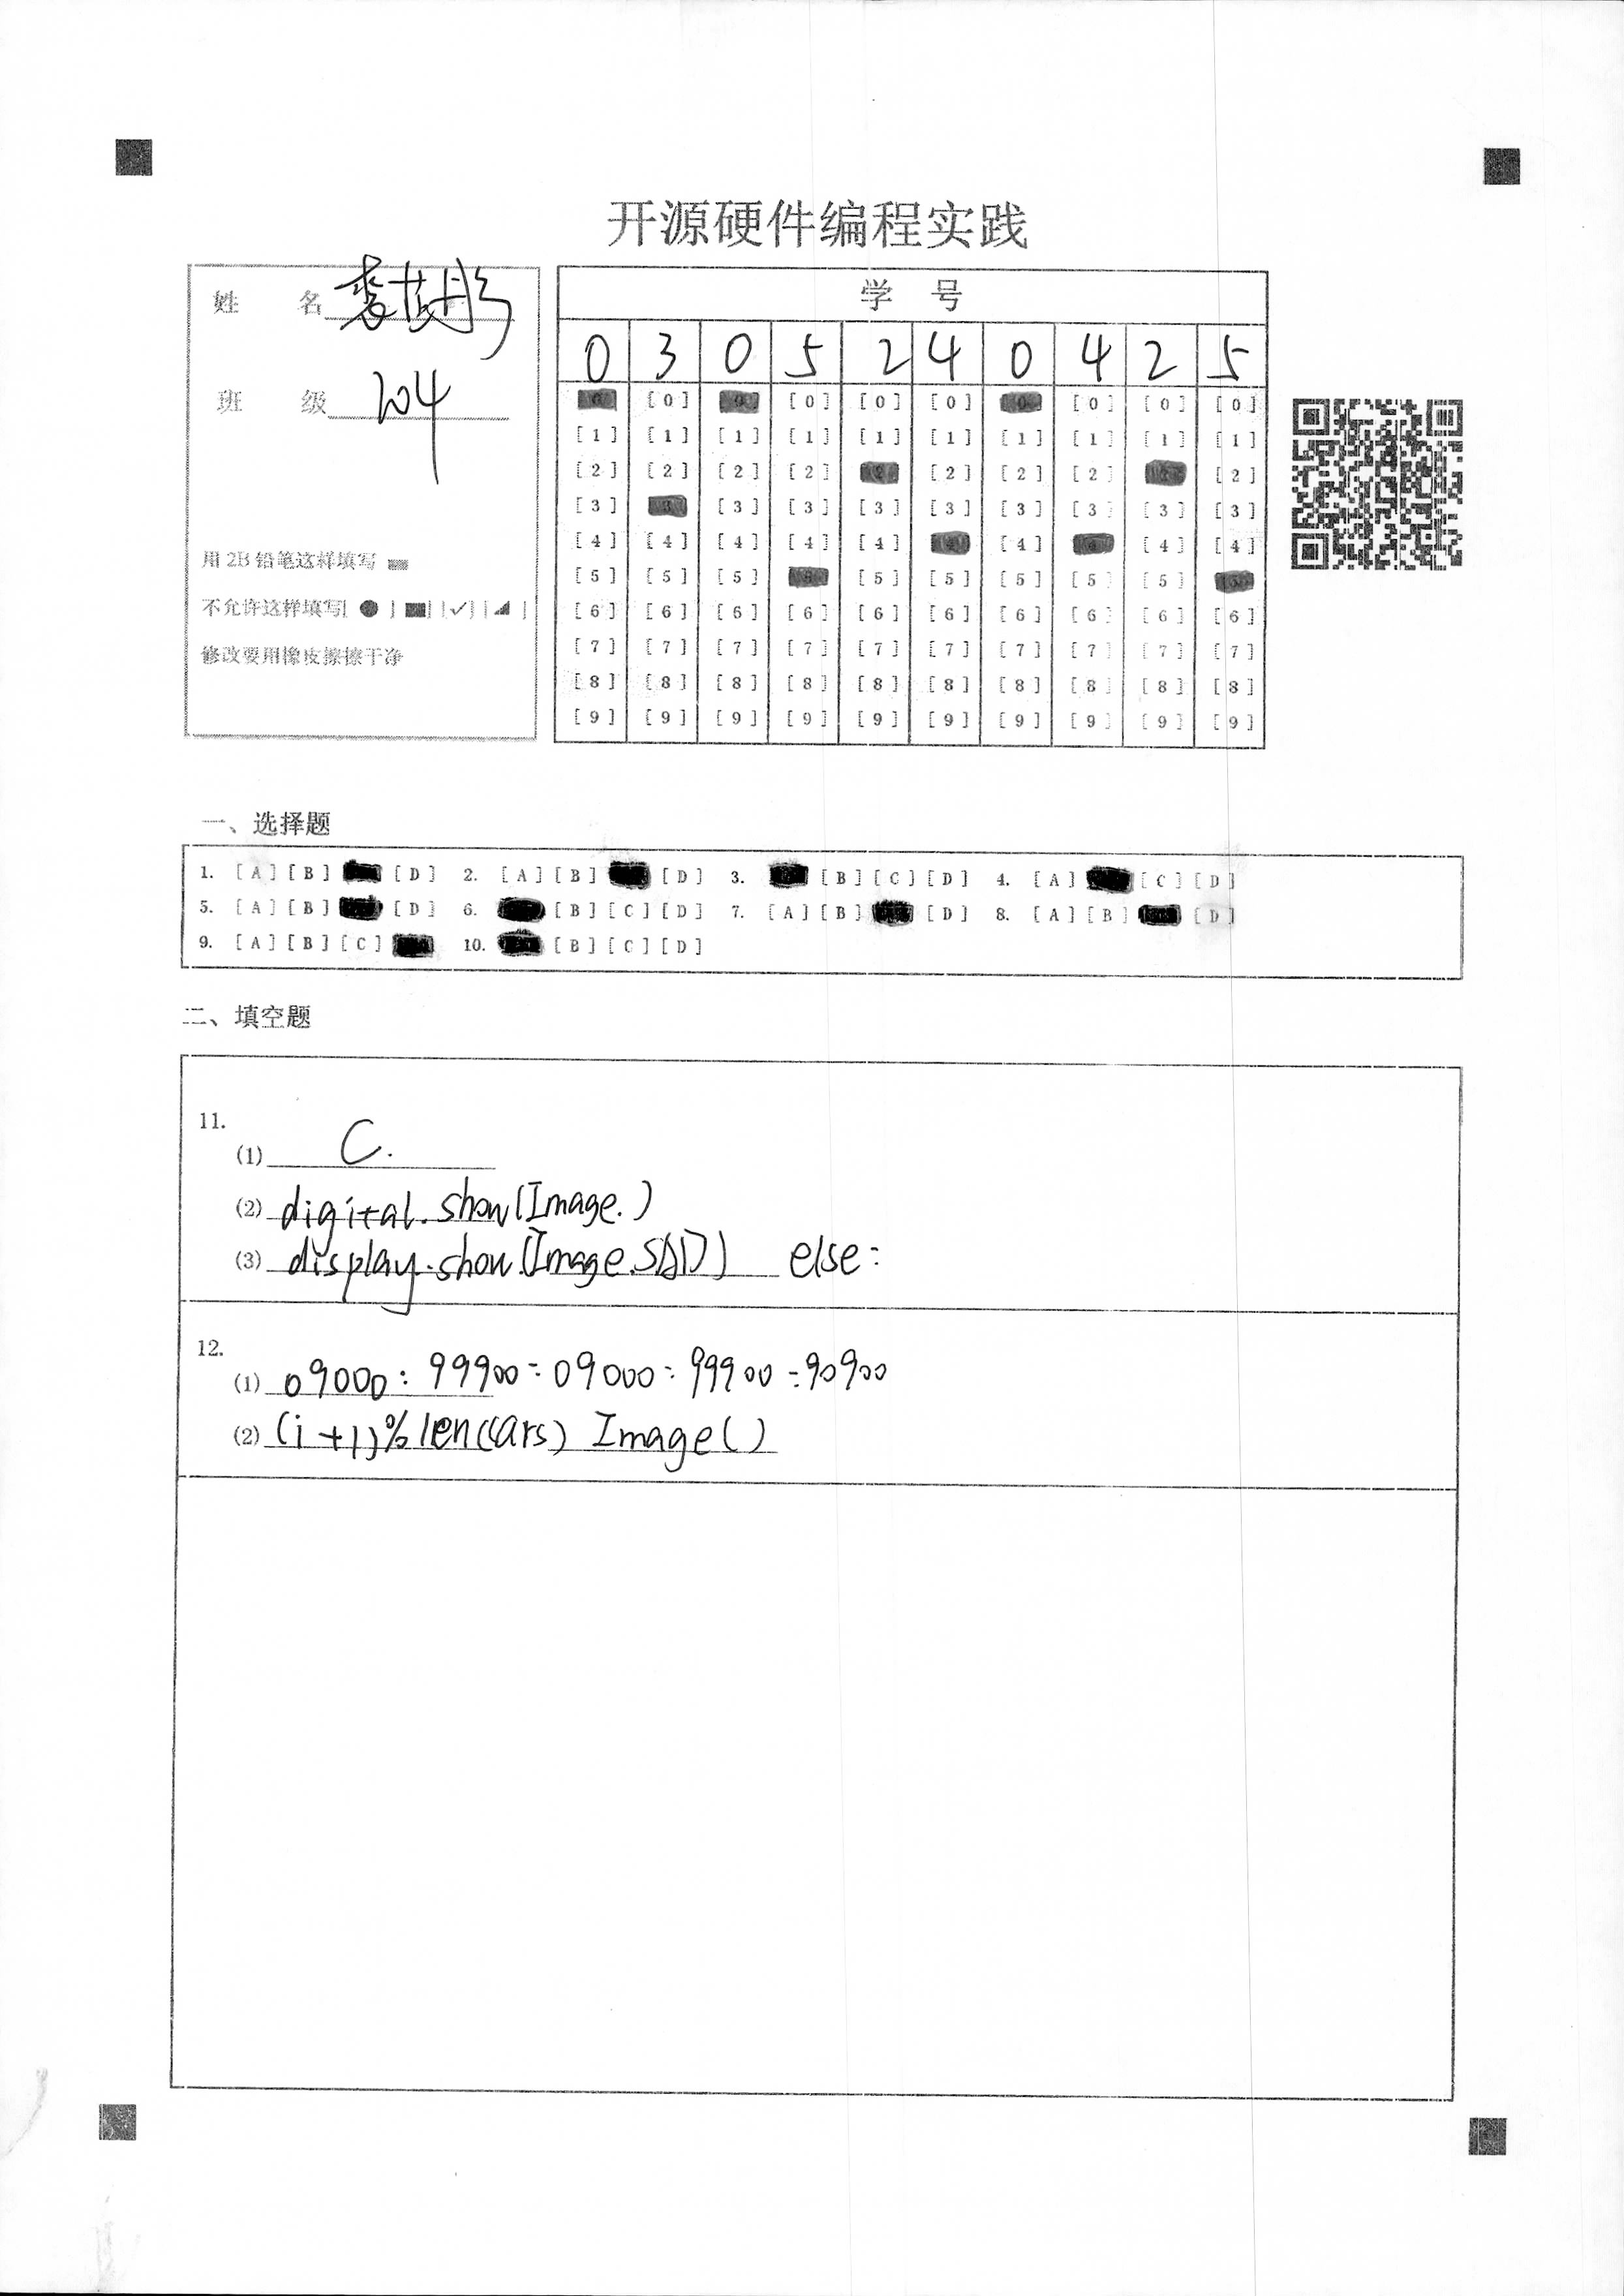 开源硬件编程实践
姓 名
班 级 204
用 2B 铅笔这样填写
不允许这样填写[ ● ] [■] [✓] [◢ ]
修改要用橡皮擦擦干净
学 号
0 3 0 5 2 4 0 4 2 5
[0] [0] [0] [0] [0] [0] [0] [0] [0] [0]
[1] [1] [1] [1] [1] [1] [1] [1] [1] [1]
[2] [2] [2] [2] [2] [2] [2] [2] [2] [2]
[3] [3] [3] [3] [3] [3] [3] [3] [3] [3]
[4] [4] [4] [4] [4] [4] [4] [4] [4] [4]
[5] [5] [5] [5] [5] [5] [5] [5] [5] [5]
[6] [6] [6] [6] [6] [6] [6] [6] [6] [6]
[7] [7] [7] [7] [7] [7] [7] [7] [7] [7]
[8] [8] [8] [8] [8] [8] [8] [8] [8] [8]
[9] [9] [9] [9] [9] [9] [9] [9] [9] [9]
一、选择题
1. [A] [B] [D] 2. [A] [B] [D] 3. [B] [C] [D] 4. [A] [C] [D]
5. [A] [B] [D] 6. [B] [C] [D] 7. [A] [B] [D] 8. [A] [B] [D]
9. [A] [B] [C] 10. [B] [C] [D]
二、填空题
11.
(1) C.
(2) digital.show(Image.)
(3) display.show(Image.SAD) else:
12.
(1) 09000:99900:09000:99900:90900
(2) (i+1)%len(cars) Image()